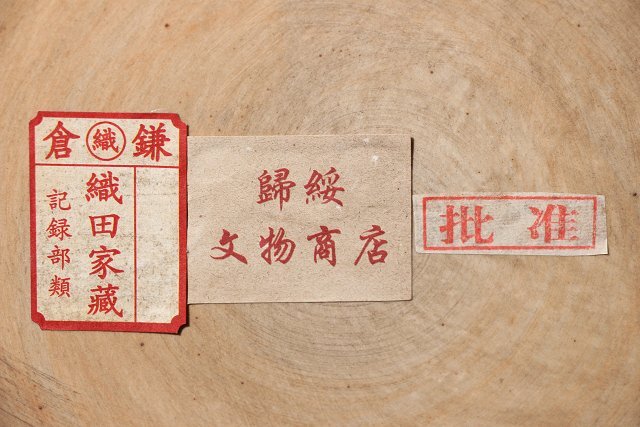 鎌㊢倉
織田家藏
記録部類
歸綏
文物商店
批准